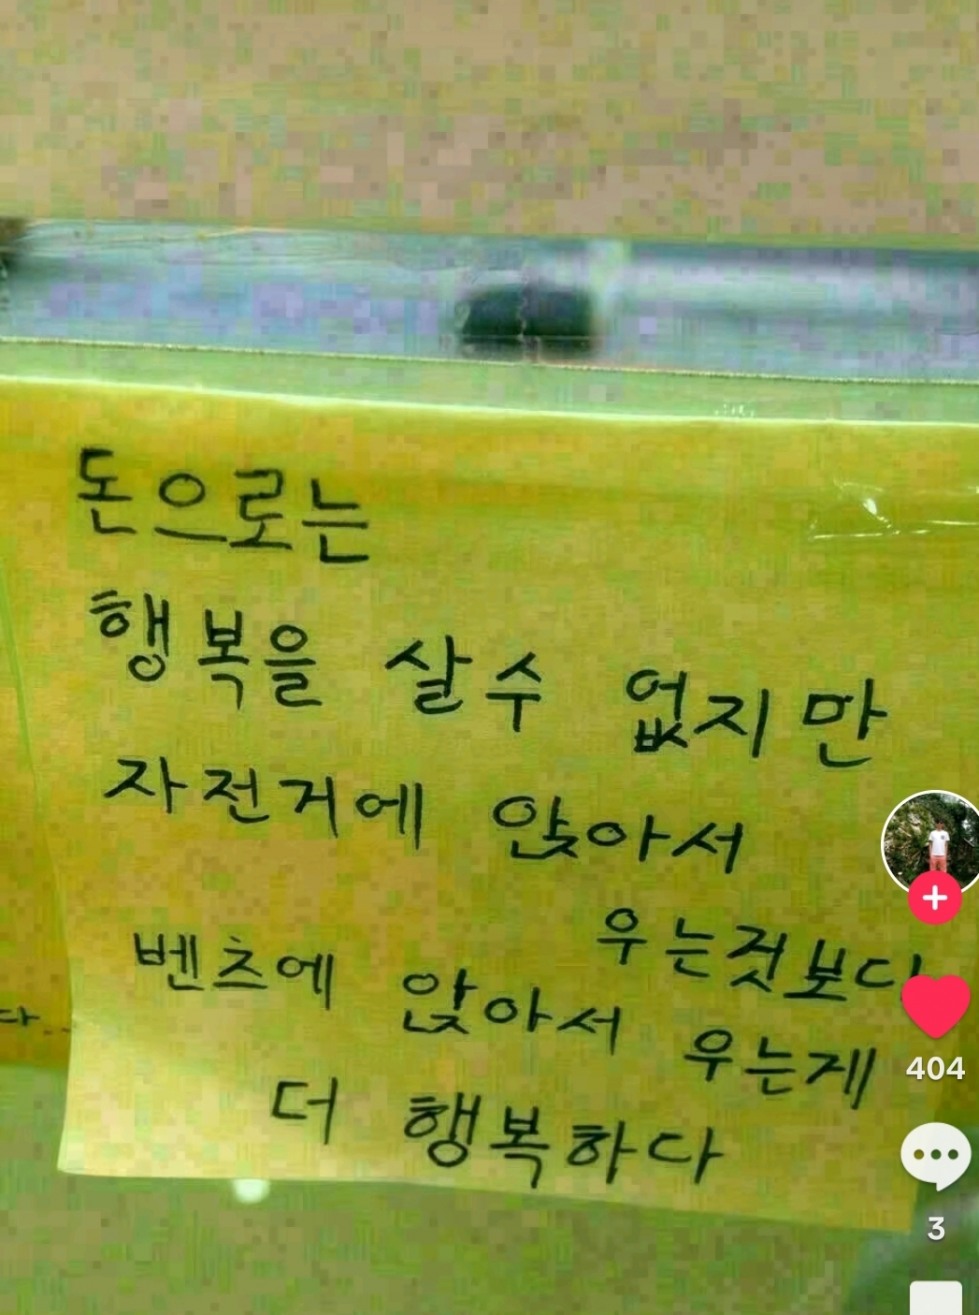 돈으로는
행복을 살수 없지만
자전거에 앉아서
우는것보다
벤츠에 앉아서 우는게
더 행복하다
다..
404
3